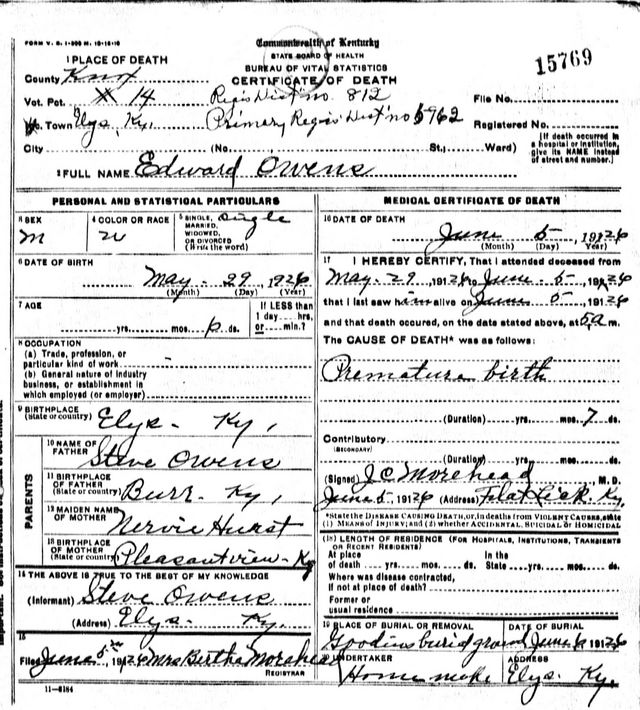 FORM V. S. 1-300 M. 10-16-10
Commonwealth of Kentucky
STATE BOARD OF HEALTH
BUREAU OF VITAL STATISTICS
CERTIFICATE OF DEATH
15769
1 PLACE OF DEATH
County Knox
Vot. Pct. 14 Regis Dist no. 812 File No.
Town Elys, Ky, Primary Regis Dist no 5962 Registered No.
City (No. St., Ward) (If death occurred in a hospital or institution, give its NAME instead of street and number.)
2 FULL NAME Edward Owens
PERSONAL AND STATISTICAL PARTICULARS
3 SEX M
4 COLOR OR RACE W
5 SINGLE, MARRIED, WIDOWED, OR DIVORCED (Write the word) Single
6 DATE OF BIRTH
May 29, 1926
(Month) (Day) (Year)
7 AGE
yrs. mos. 6 ds.
If LESS than 1 day hrs, or min.?
8 OCCUPATION
(a) Trade, profession, or particular kind of work -
(b) General nature of industry business, or establishment in which employed (or employer)
9 BIRTHPLACE (State or country) Elys - Ky,
PARENTS
10 NAME OF FATHER Steve Owens
11 BIRTHPLACE OF FATHER (State or country) Burr - Ky,
12 MAIDEN NAME OF MOTHER Nervie Hurst
13 BIRTHPLACE OF MOTHER (State or country) Pleasantview - Ky
14 THE ABOVE IS TRUE TO THE BEST OF MY KNOWLEDGE
(Informant) Steve Owens
(Address) Elys. Ky.
15
Filed June 5, 1926 Mrs Bertha Morehead
REGISTRAR
11-5184
MEDICAL CERTIFICATE OF DEATH
16 DATE OF DEATH
June 5, 1926
(Month) (Day) (Year)
17 I HEREBY CERTIFY, That I attended deceased from
May - 29, 1926 to June - 5 - 1926
that I last saw him alive on June 5 - 1926
and that death occurred, on the date stated above, at 5 a m.
The CAUSE OF DEATH* was as follows:
Premature birth
(Duration) yrs. mos. 7 ds.
Contributory
(SECONDARY)
(Duration) yrs. mos. ds.
(Signed) J C Morehead, M. D.
June 5 - 1926 (Address) Flat Lick, Ky.
*State the DISEASE CAUSING DEATH, or, in deaths from VIOLENT CAUSES, state
(1) MEANS OF INJURY; and (2) whether ACCIDENTAL, SUICIDAL or HOMICIDAL
(18) LENGTH OF RESIDENCE (FOR HOSPITALS, INSTITUTIONS, TRANSIENTS OR RECENT RESIDENTS)
At place of death yrs. mos. ds. In the State yrs. mos. ds.
Where was disease contracted,
if not at place of death?
Former or
usual residence
19 PLACE OF BURIAL OR REMOVAL DATE OF BURIAL
Goodins burid ground June 6, 1926
20 UNDERTAKER ADDRESS
Home make Elys Ky,